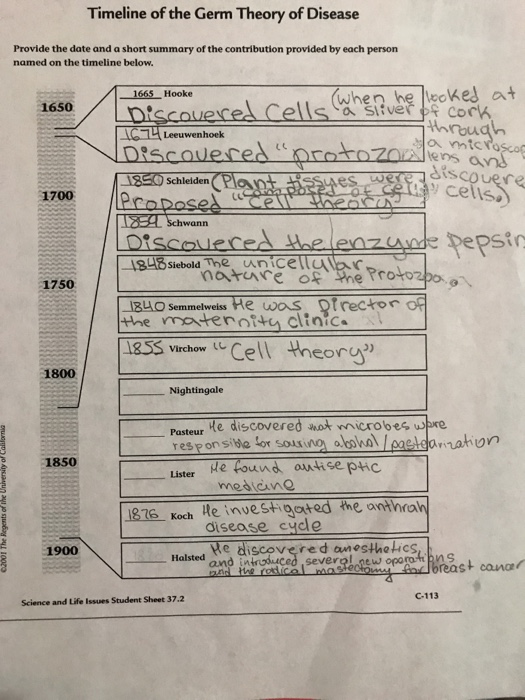 Timeline of the Germ Theory of Disease
Provide the date and a short summary of the contribution provided by each person
named on the timeline below.
1650
1700
1750
1800
1850
1900
1665 Hooke
Discovered Cells (when he looked at
a sliver of cork
through
a microscop
lens and
discovere
cells.)
1674 Leeuwenhoek
Discovered "protozoa"
1850 Schleiden (Plant tissyes were
composed of cells)
Proposed "cell theory"
1859 Schwann
Discovered the enzyme pepsin
1848 Siebold The unicellular
nature of the Protozoa.
1840 Semmelweiss He was Director of
the maternity clinic.
1855 Virchow "Cell theory"
Nightingale
Pasteur He discovered that microbes were
responsible for souring alcohol / pasteurization
Lister He found antiseptic
medicine
1876 Koch He investigated the anthrah
disease cycle
Halsted He discovered anesthetics,
and introduced several new operations
and the radical mastectomy for breast cancer
Science and Life Issues Student Sheet 37.2
C-113
©2001 The Regents of the University of California